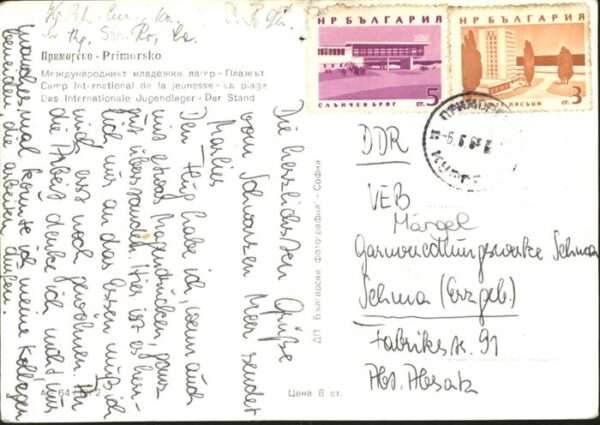 НР БЪЛГАРИЯ
СЛЪНЧЕВ БРЯГ ст. 5
НР БЪЛГАРИЯ
ст. 3
Приморско - Primorsko
Международният младежки лагер - Плажът
Camp International de la jeunesse - La plage
Das Internationale Jugendlager - Der Stand
Die herzlichsten Grüße
vom Schwarzen Meer sendet
Marlies
Den Flug habe ich, wenn auch
mit etwas Magendrücken, ganz
gut überstanden. Hier ist es herr-
lich, nur an das Essen muß ich
mich erst noch gewöhnen. An
die Arbeit denke ich nicht, nur
manchesmal könnte ich meine Kollegen
die arbeiten dürfen.
ДП "Българска фотография" - София
Цена 8 ст.
DDR
VEB
Garnveredlungswerke Sehma
Sehma (Erzgeb.)
Fabrikstr. 91
Abt. Absatz